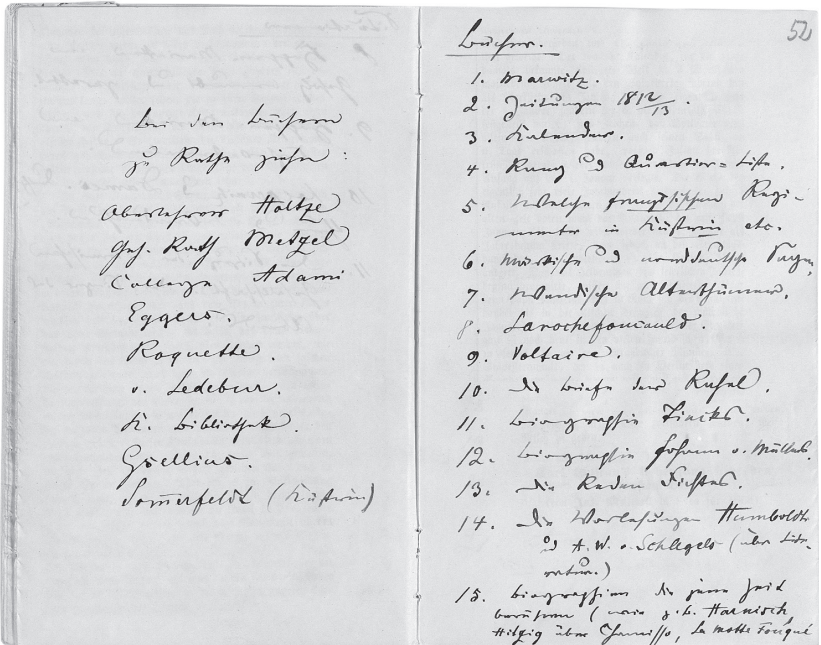 Bei den Büchern
zu Rathe ziehn:
Oberlehrer Holtze
Geh. Rath Metzel
College Adami
Eggers.
Roquette.
v. Ledebur.
K. Bibliothek.
Gsellius.
Som̅erfeldt (Küstrin)
52
Bücher.
1. Marwitz.
2. Zeitungen 1812/13.
3. Kalender.
4. Rang und Quartier=Liste.
5. Welche französischen Regi-
menter in Küstrin etc.
6. Märkische und norddeutsche Sagen.
7. Wendische Alterthümer.
8. Larochefoucauld.
9. Voltaire.
10. Die Briefe der Rahel.
11. Biographie Tiecks.
12. Biographie Johann v. Müllers.
13. Die Reden Fichtes.
14. Die Vorlesungen Humboldts
und A. W. v. Schlegels (über Lite-
ratur.)
15. Biographieen die jene Zeit
berühren (wie z. B. Harnisch
Hitzig über Chamisso, La Motte Fouqué